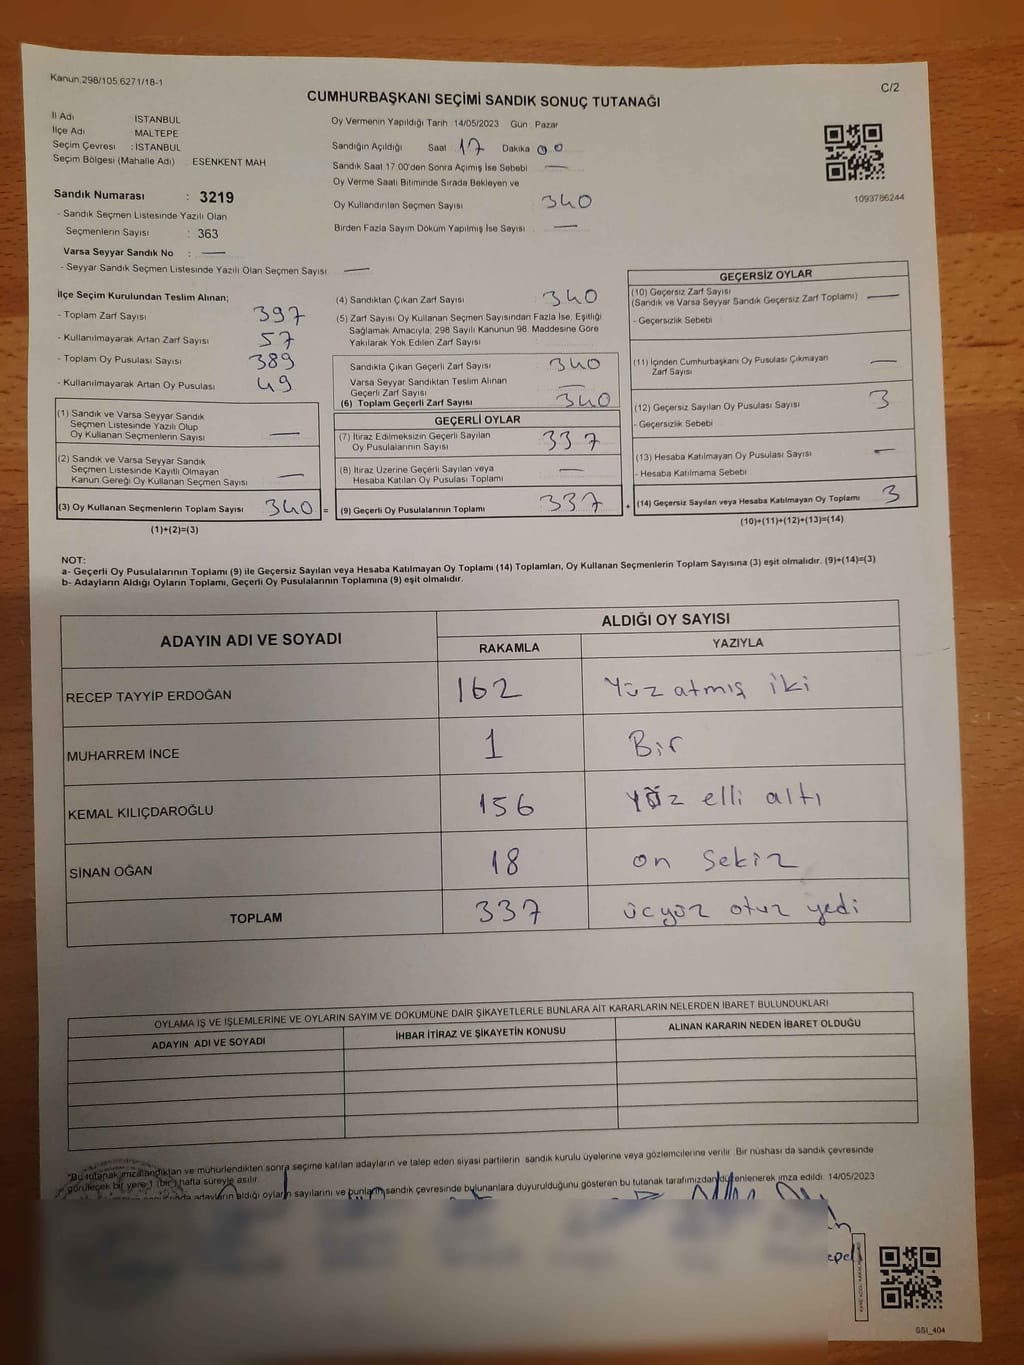 Kanun.298/105,6271/18-1
C/2
CUMHURBAŞKANI SEÇİMİ SANDIK SONUÇ TUTANAĞI
İl Adı İSTANBUL
İlçe Adı MALTEPE
Seçim Çevresi : İSTANBUL
Seçim Bölgesi (Mahalle Adı) . ESENKENT MAH
Oy Vermenin Yapıldığı Tarih 14/05/2023 Gün Pazar
Sandığın Açıldığı Saat 17 Dakika 00
Sandık Saat 17:00'den Sonra Açılmış İse Sebebi —
Oy Verme Saati Bitiminde Sırada Bekleyen ve
Oy Kullandırılan Seçmen Sayısı 340
Birden Fazla Sayım Döküm Yapılmış İse Sayısı —
1093786244
Sandık Numarası : 3219
- Sandık Seçmen Listesinde Yazılı Olan
Seçmenlerin Sayısı : 363
Varsa Seyyar Sandık No : —
- Seyyar Sandık Seçmen Listesinde Yazılı Olan Seçmen Sayısı —
İlçe Seçim Kurulundan Teslim Alınan;
- Toplam Zarf Sayısı 397
- Kullanılmayarak Artan Zarf Sayısı 57
- Toplam Oy Pusulası Sayısı 389
- Kullanılmayarak Artan Oy Pusulası 49
(1) Sandık ve Varsa Seyyar Sandık
Seçmen Listesinde Yazılı Olup
Oy Kullanan Seçmenlerin Sayısı —
(2) Sandık ve Varsa Seyyar Sandık
Seçmen Listesinde Kayıtlı Olmayan
Kanun Gereği Oy Kullanan Seçmen Sayısı —
(3) Oy Kullanan Seçmenlerin Toplam Sayısı 340 =
(1)+(2)=(3)
(4) Sandıktan Çıkan Zarf Sayısı 340
(5) Zarf Sayısı Oy Kullanan Seçmen Sayısından Fazla İse, Eşitliği
Sağlamak Amacıyla; 298 Sayılı Kanunun 98. Maddesine Göre
Yakılarak Yok Edilen Zarf Sayısı
Sandıkta Çıkan Geçerli Zarf Sayısı 340
Varsa Seyyar Sandıktan Teslim Alınan
Geçerli Zarf Sayısı —
(6) Toplam Geçerli Zarf Sayısı 340
GEÇERLİ OYLAR
(7) İtiraz Edilmeksizin Geçerli Sayılan
Oy Pusulalarının Sayısı 337
(8) İtiraz Üzerine Geçerli Sayılan veya
Hesaba Katılan Oy Pusulası Toplamı —
(9) Geçerli Oy Pusulalarının Toplamı 337 +
GEÇERSİZ OYLAR
(10) Geçersiz Zarf Sayısı
(Sandık ve Varsa Seyyar Sandık Geçersiz Zarf Toplamı) —
- Geçersizlik Sebebi
(11) İçinden Cumhurbaşkanı Oy Pusulası Çıkmayan
Zarf Sayısı —
(12) Geçersiz Sayılan Oy Pusulası Sayısı 3
- Geçersizlik Sebebi
(13) Hesaba Katılmayan Oy Pusulası Sayısı —
- Hesaba Katılmama Sebebi
(14) Geçersiz Sayılan veya Hesaba Katılmayan Oy Toplamı 3
(10)+(11)+(12)+(13)=(14)
NOT:
a- Geçerli Oy Pusulalarının Toplamı (9) ile Geçersiz Sayılan veya Hesaba Katılmayan Oy Toplamı (14) Toplamları, Oy Kullanan Seçmenlerin Toplam Sayısına (3) eşit olmalıdır. (9)+(14)=(3)
b- Adayların Aldığı Oyların Toplamı, Geçerli Oy Pusulalarının Toplamına (9) eşit olmalıdır.
ADAYIN ADI VE SOYADI
ALDIĞI OY SAYISI
RAKAMLA YAZIYLA
RECEP TAYYİP ERDOĞAN 162 Yüz atmış iki
MUHARREM İNCE 1 Bir
KEMAL KILIÇDAROĞLU 156 Yüz elli altı
SİNAN OĞAN 18 on sekiz
TOPLAM 337 üçyüz otuz yedi
OYLAMA İŞ VE İŞLEMLERİNE VE OYLARIN SAYIM VE DÖKÜMÜNE DAİR ŞİKAYETLERLE BUNLARA AİT KARARLARIN NELERDEN İBARET BULUNDUKLARI
ADAYIN ADI VE SOYADI İHBAR İTİRAZ VE ŞİKAYETİN KONUSU ALINAN KARARIN NEDEN İBARET OLDUĞU
"Bu tutanak imzalandıktan ve mühürlendikten sonra seçime katılan adayların ve talep eden siyasi partilerin sandık kurulu üyelerine veya gözlemcilerine verilir. Bir nüshası da sandık çevresinde
görülecek bir yere 1 (bir) hafta süreyle asılır.
adayların aldığı oyların sayılarını ve bunların sandık çevresinde bulunanlara duyurulduğunu gösteren bu tutanak tarafımızdan düzenlenerek imza edildi. 14/05/2023
GSI_404